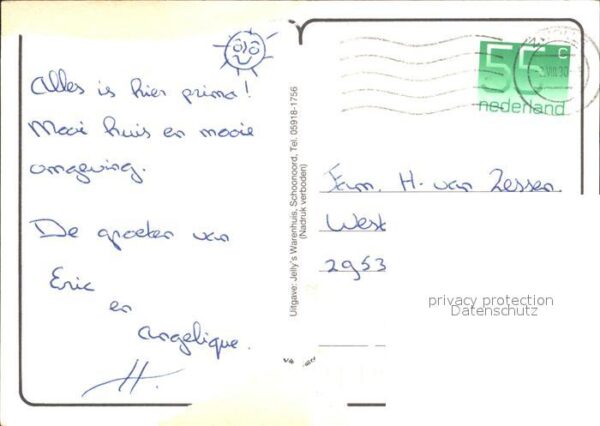 Alles is hier prima!
Mooi huis en mooie
omgeving.
De groeten van
Eric
en
Angelique.
Uitgave: Jelly's Warenhuis, Schoonoord, Tel. 05918-1756
(Nadruk verboden)
55 c
nederland
Fam. H. van Zessen.
West
2953
privacy protection
Datenschutz